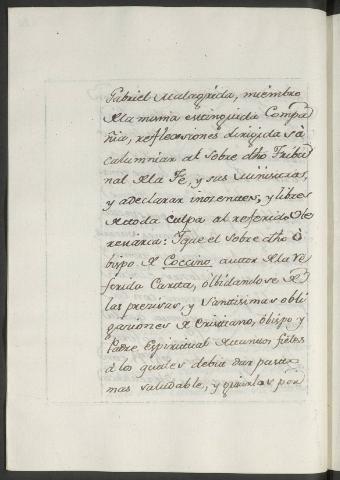 Gabriel Malagrida, miembro
de la misma extinguida Compa
ñia, reflecsiones dirigidas à
calumniar al sobre dho Tribu
nal de la Fe, y sus Ministros,
y adeclarar inocentes, y libres
de toda culpa al referido
bispo de Coccino, autor de la re
ferida Carta, olbidandose de
las precisas, y santisimas obli
gaziones de Cristiano, Obispo y
Padre Espiritual de tantos fieles
à los quales debia dar pasto
mas saludable, y guiarlos por